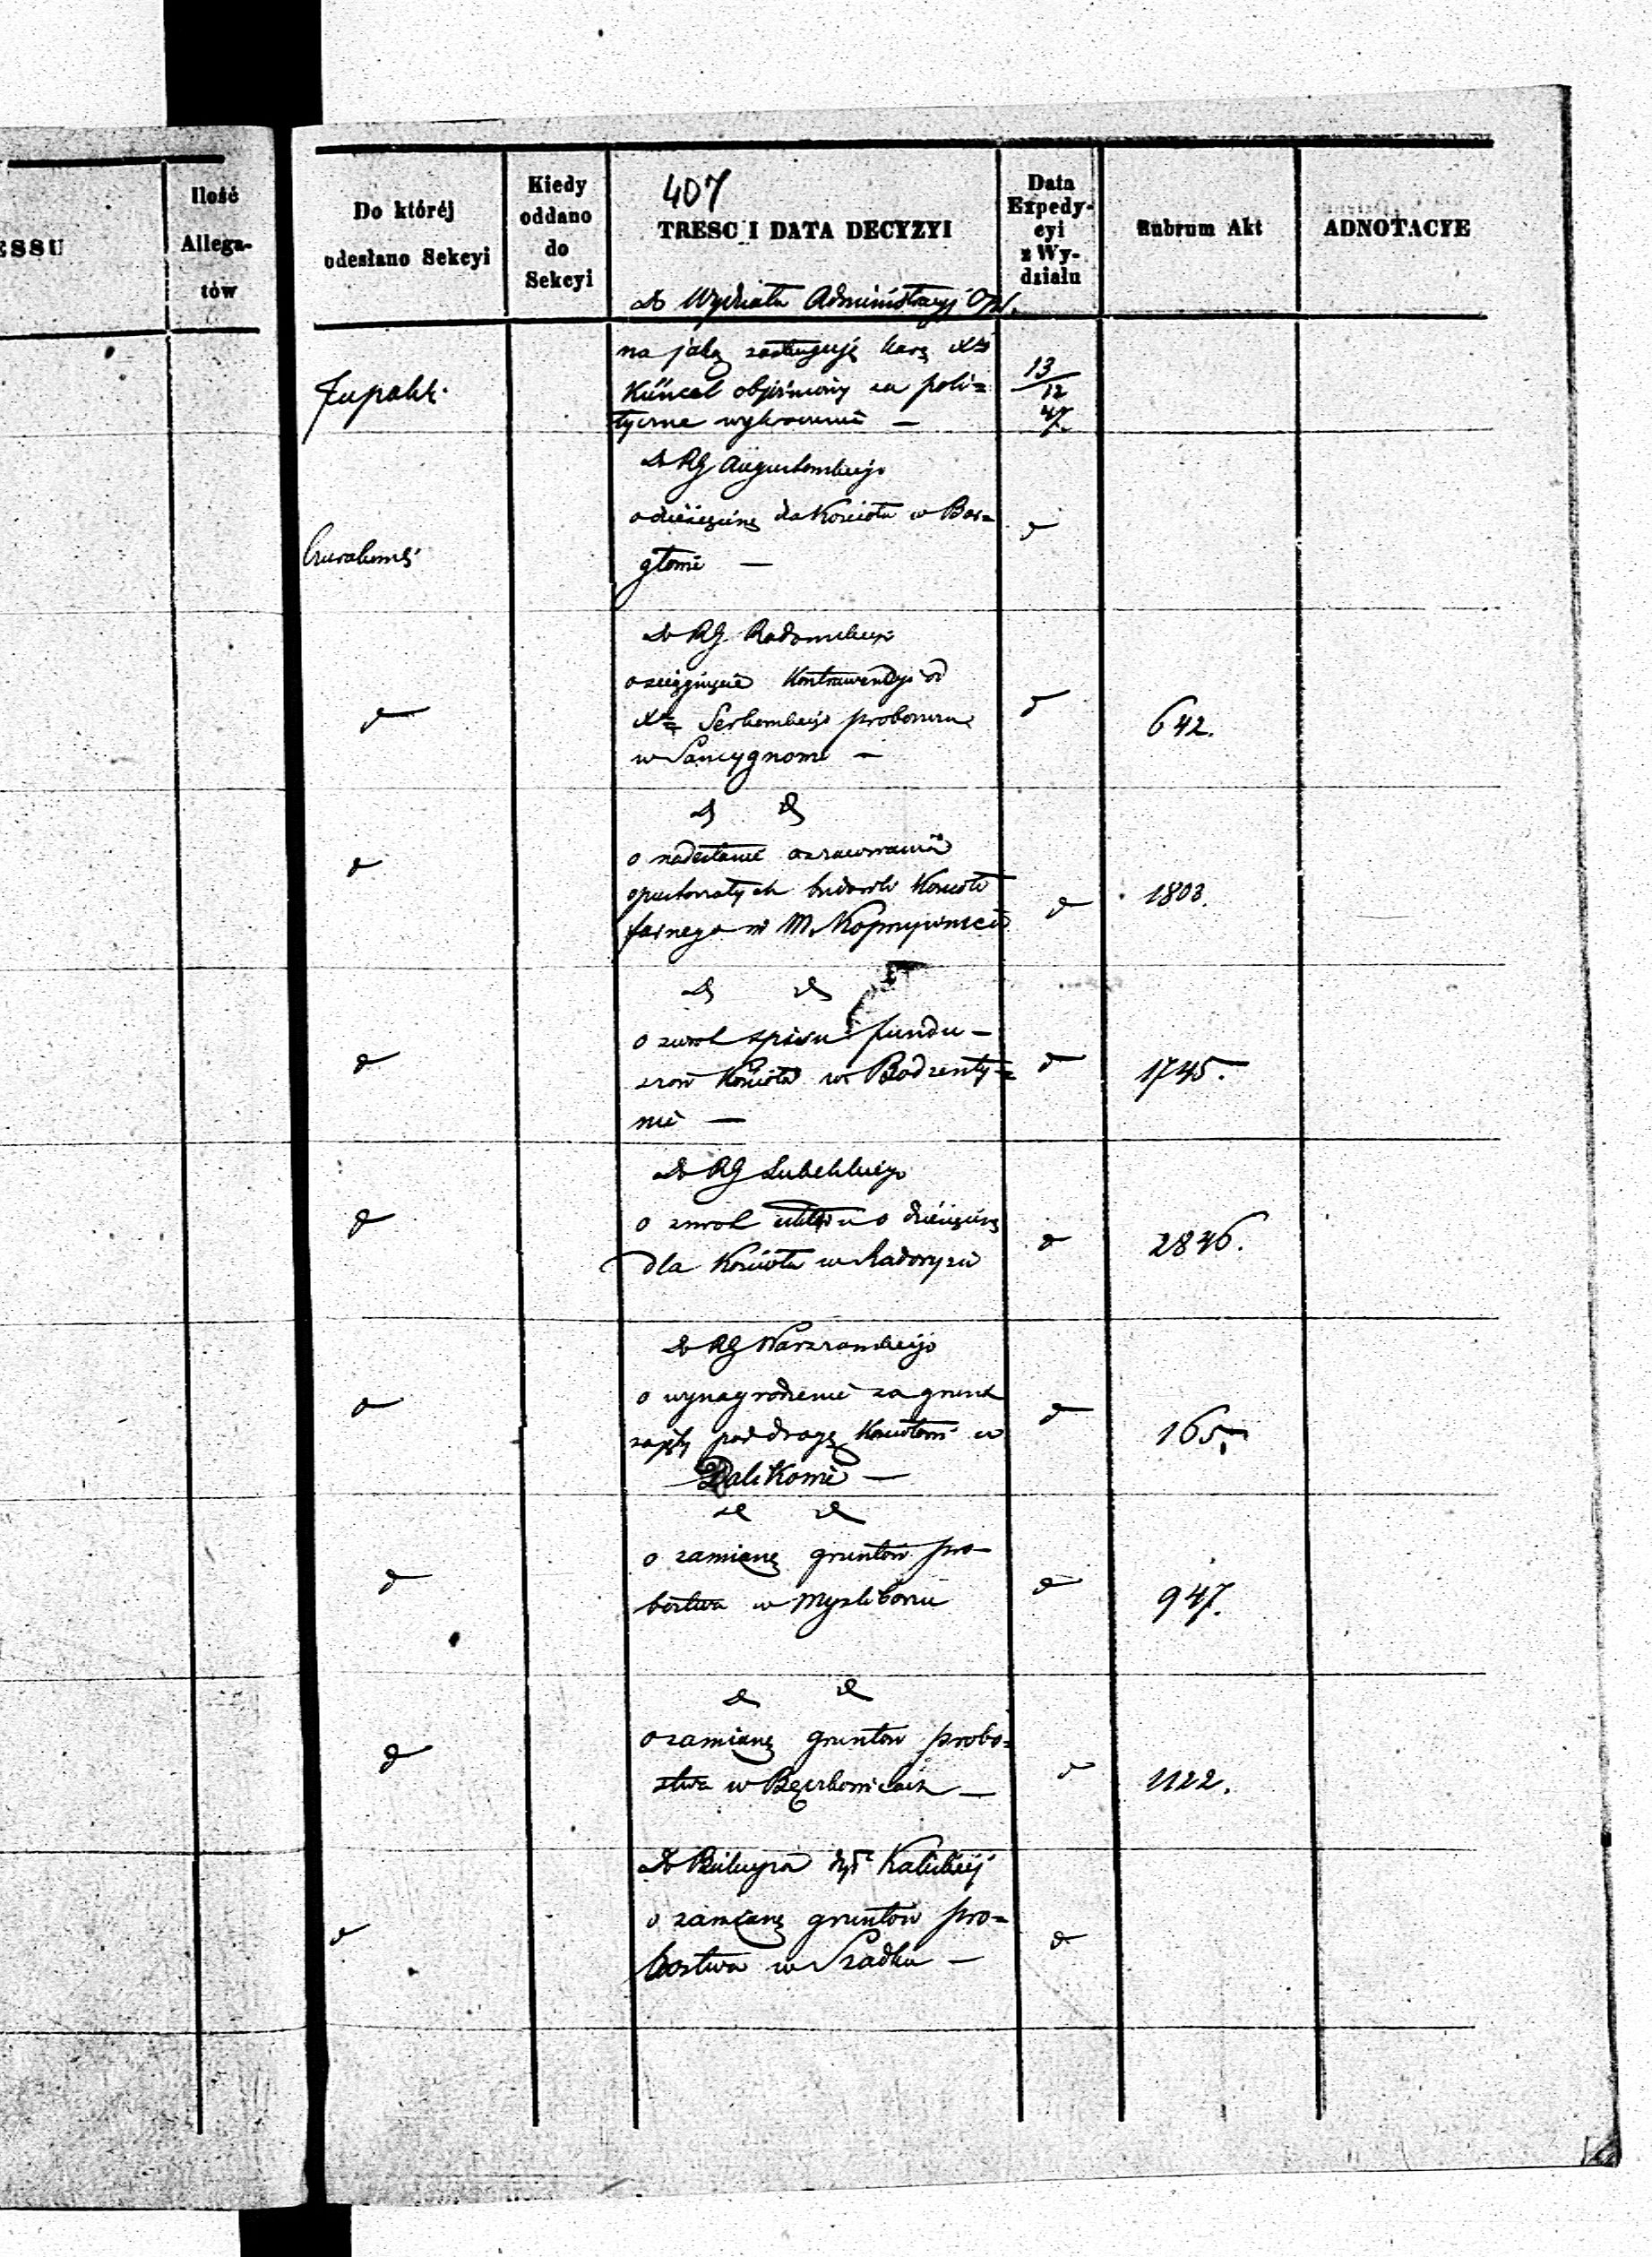 ESSU
Ilość
Allega-
tów
Do któréj
odesłano Sekcyi
Kiedy
oddano
do
Sekcyi
407
TRESC I DATA DECYZYI
Data
Expedy-
cyi
z Wy-
działu
Rubrum Akt
ADNOTACYE
Do Wydziału Administracyj Opł.
na jaką zasługuję karę Xdz
Küncel objaśniony za poli=
tyczne wykroczenie —
13
12
47.
Do RG Augustowskiego
o dziesięcinę do Kościoła w Bar=
głowie —
d
Do RG Radomskiego
o ściągnięcie Kontrawencyi od
Xdza proboszcza
w Sancygnowie —
d
d
642.
Do d
o nadesłanie oszacowania
opustoszałych budowli Kościoła
farnego w M. Koprzywnicy
d
d
1803.
Do d
o zwrot spisu fundu-
szów Kościoła w Bodzenty=
nie —
d
d
1745.
Do RG Lubelskiego
o zwrot układu o dziesięcinę
dla Kościoła w Radoryżu
d
d
2846.
Do RG Warszawskiego
o wynagrodzenie za grunt
zajęty pod drogę Kościołowi w
Dalikowie —
d
d
165.
d d
o zamianę gruntów pro-
bostwa w Myśliborzu
d
d
947.
d d
o zamianę gruntów probo=
stwa w —
d
d
1122.
Do Biskupa Dyec Kaliskiej
o zamianę gruntów pro=
bostwa w Szadku —
d
d